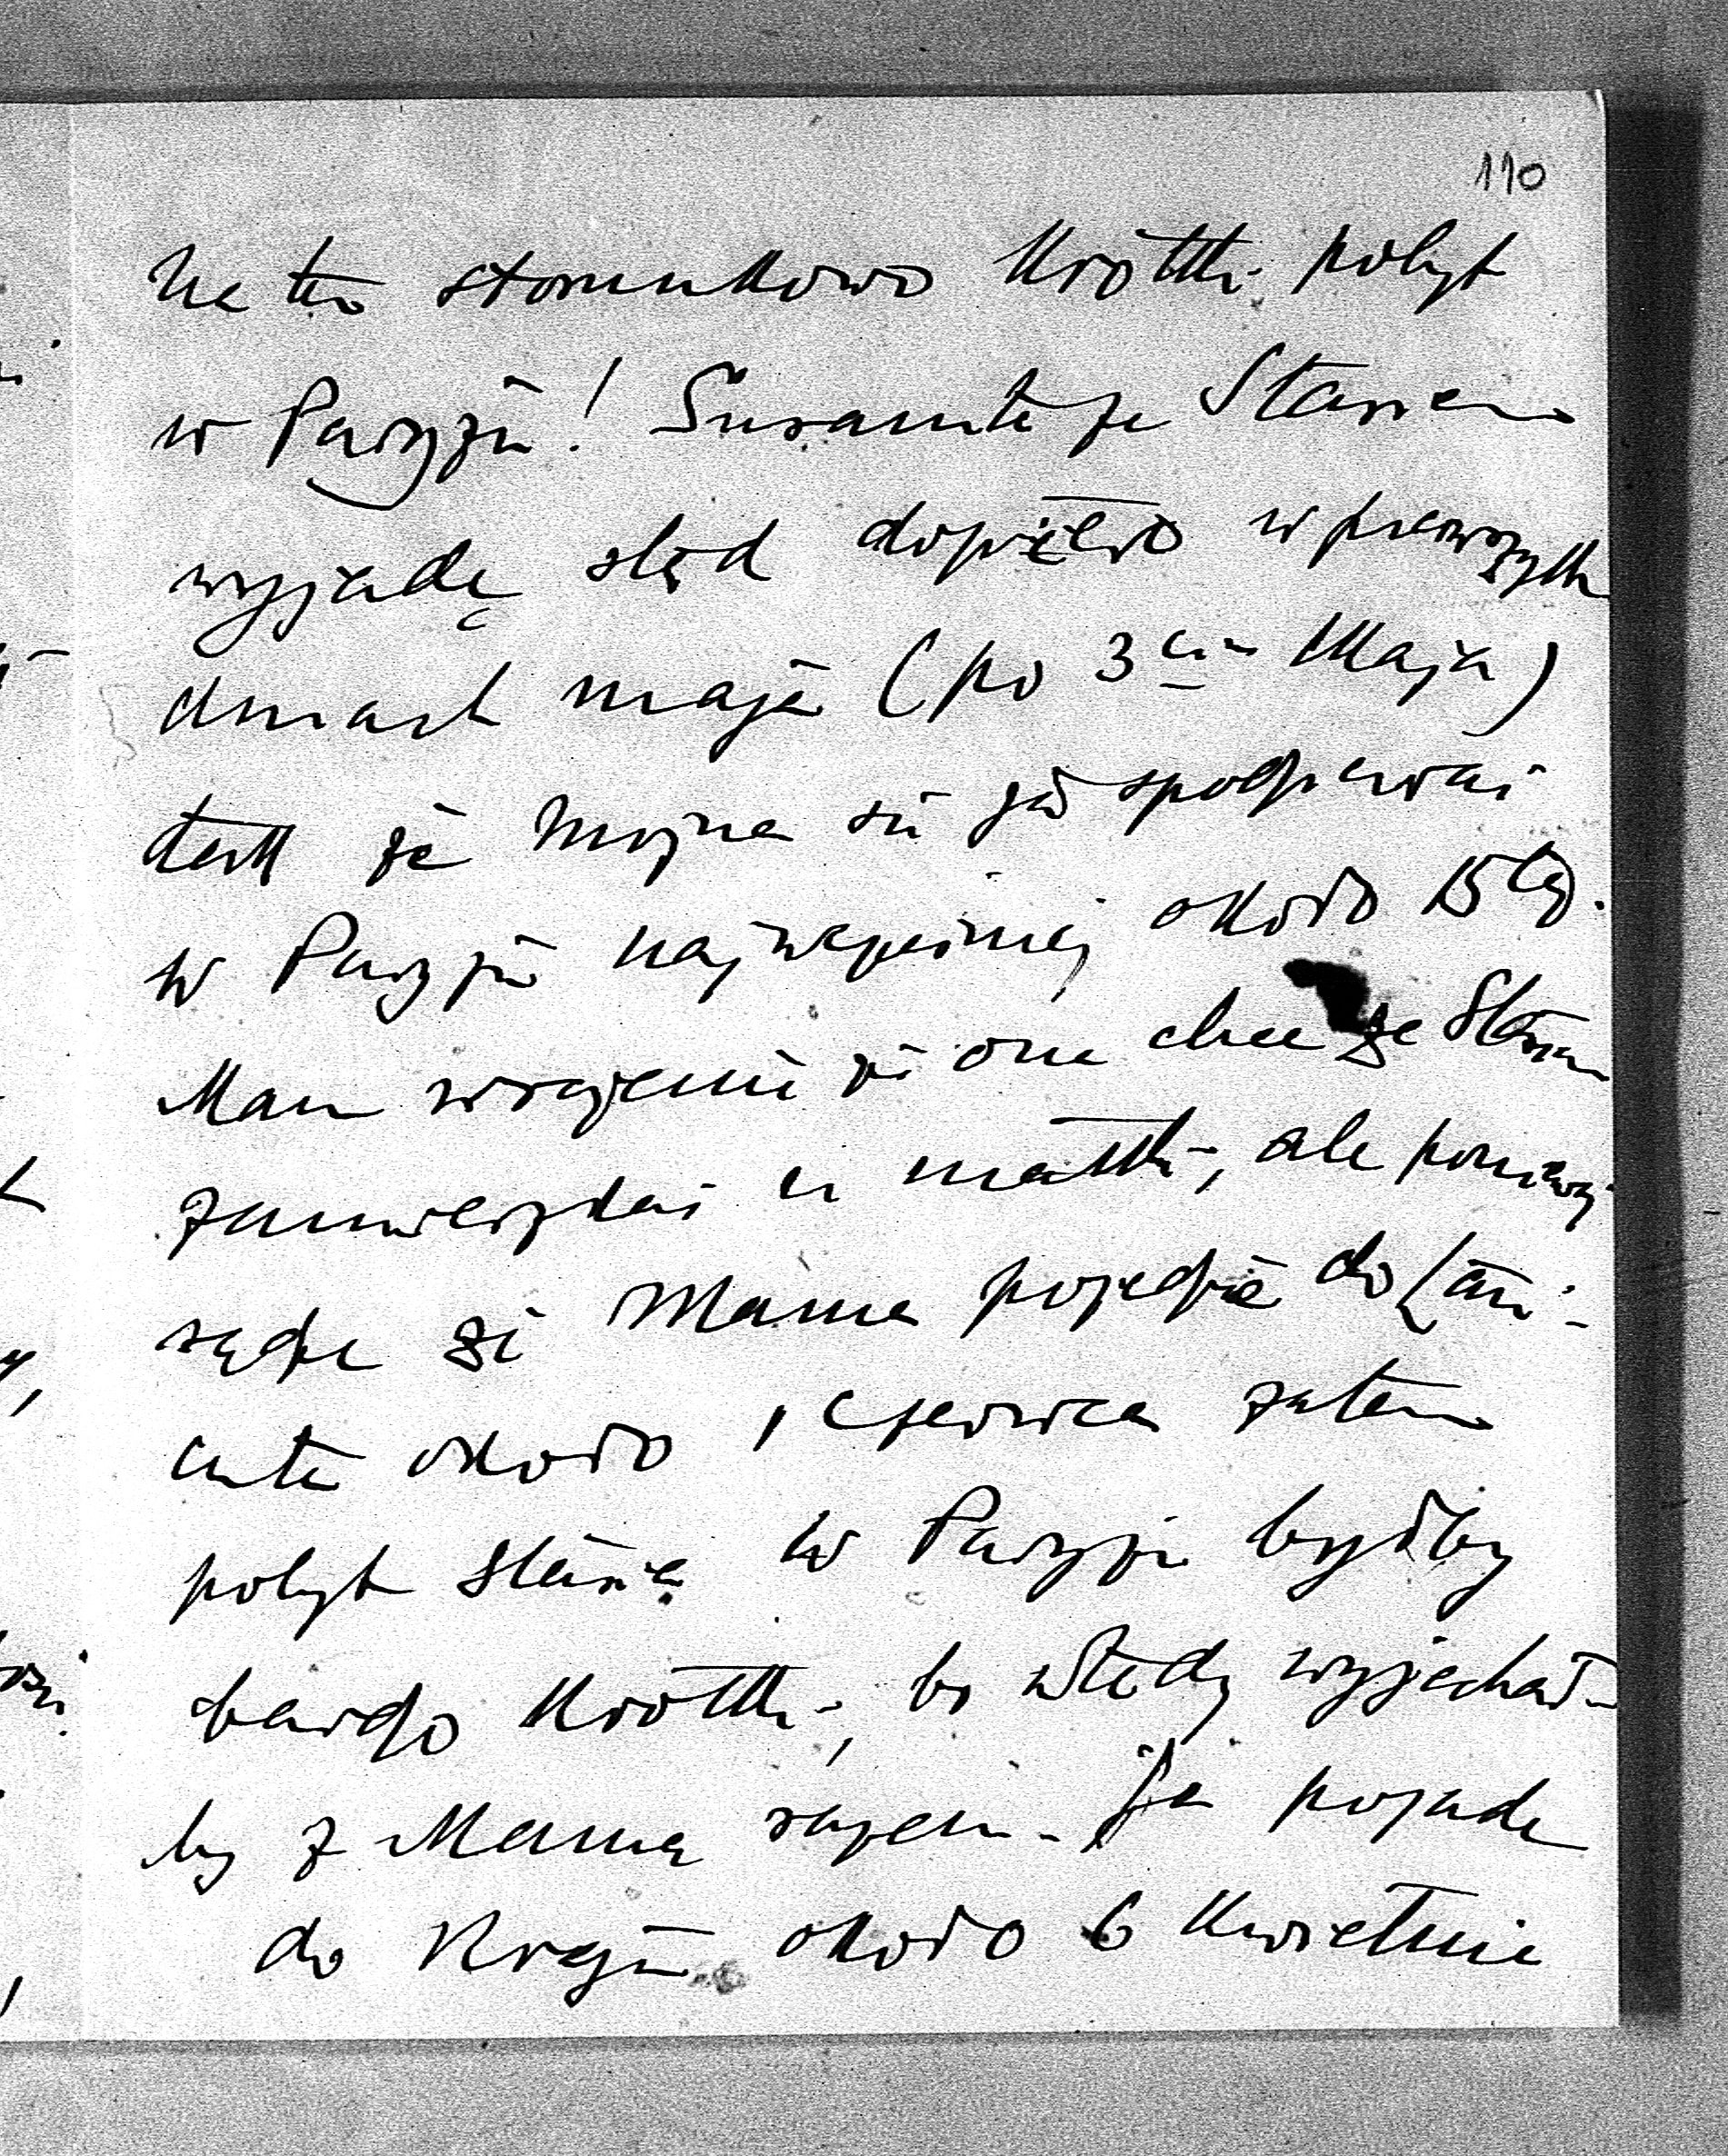 110
na to stosunkowo krótki pobyt
w Paryżu! Susanite ze Stasiem
wyjadą stąd dopiero w pierwszych
dniach maja (po 3cim Maja)
tak że można się ich spodziewać
w Paryżu najwcześniej około 15tego.
Mam wrażenie że ona chce ze Stasiem
zamieszkać u matki, ale ponieważ
sądzę że Mama pojedzie do Łań-
cuta około 1 czerwca zatem
pobyt Stasia w Paryżu byłby
bardzo krótki, bo wtedy wyjechał-
by z Mamą razem - Ja pojadę
do Kraju około 6 Kwietnia